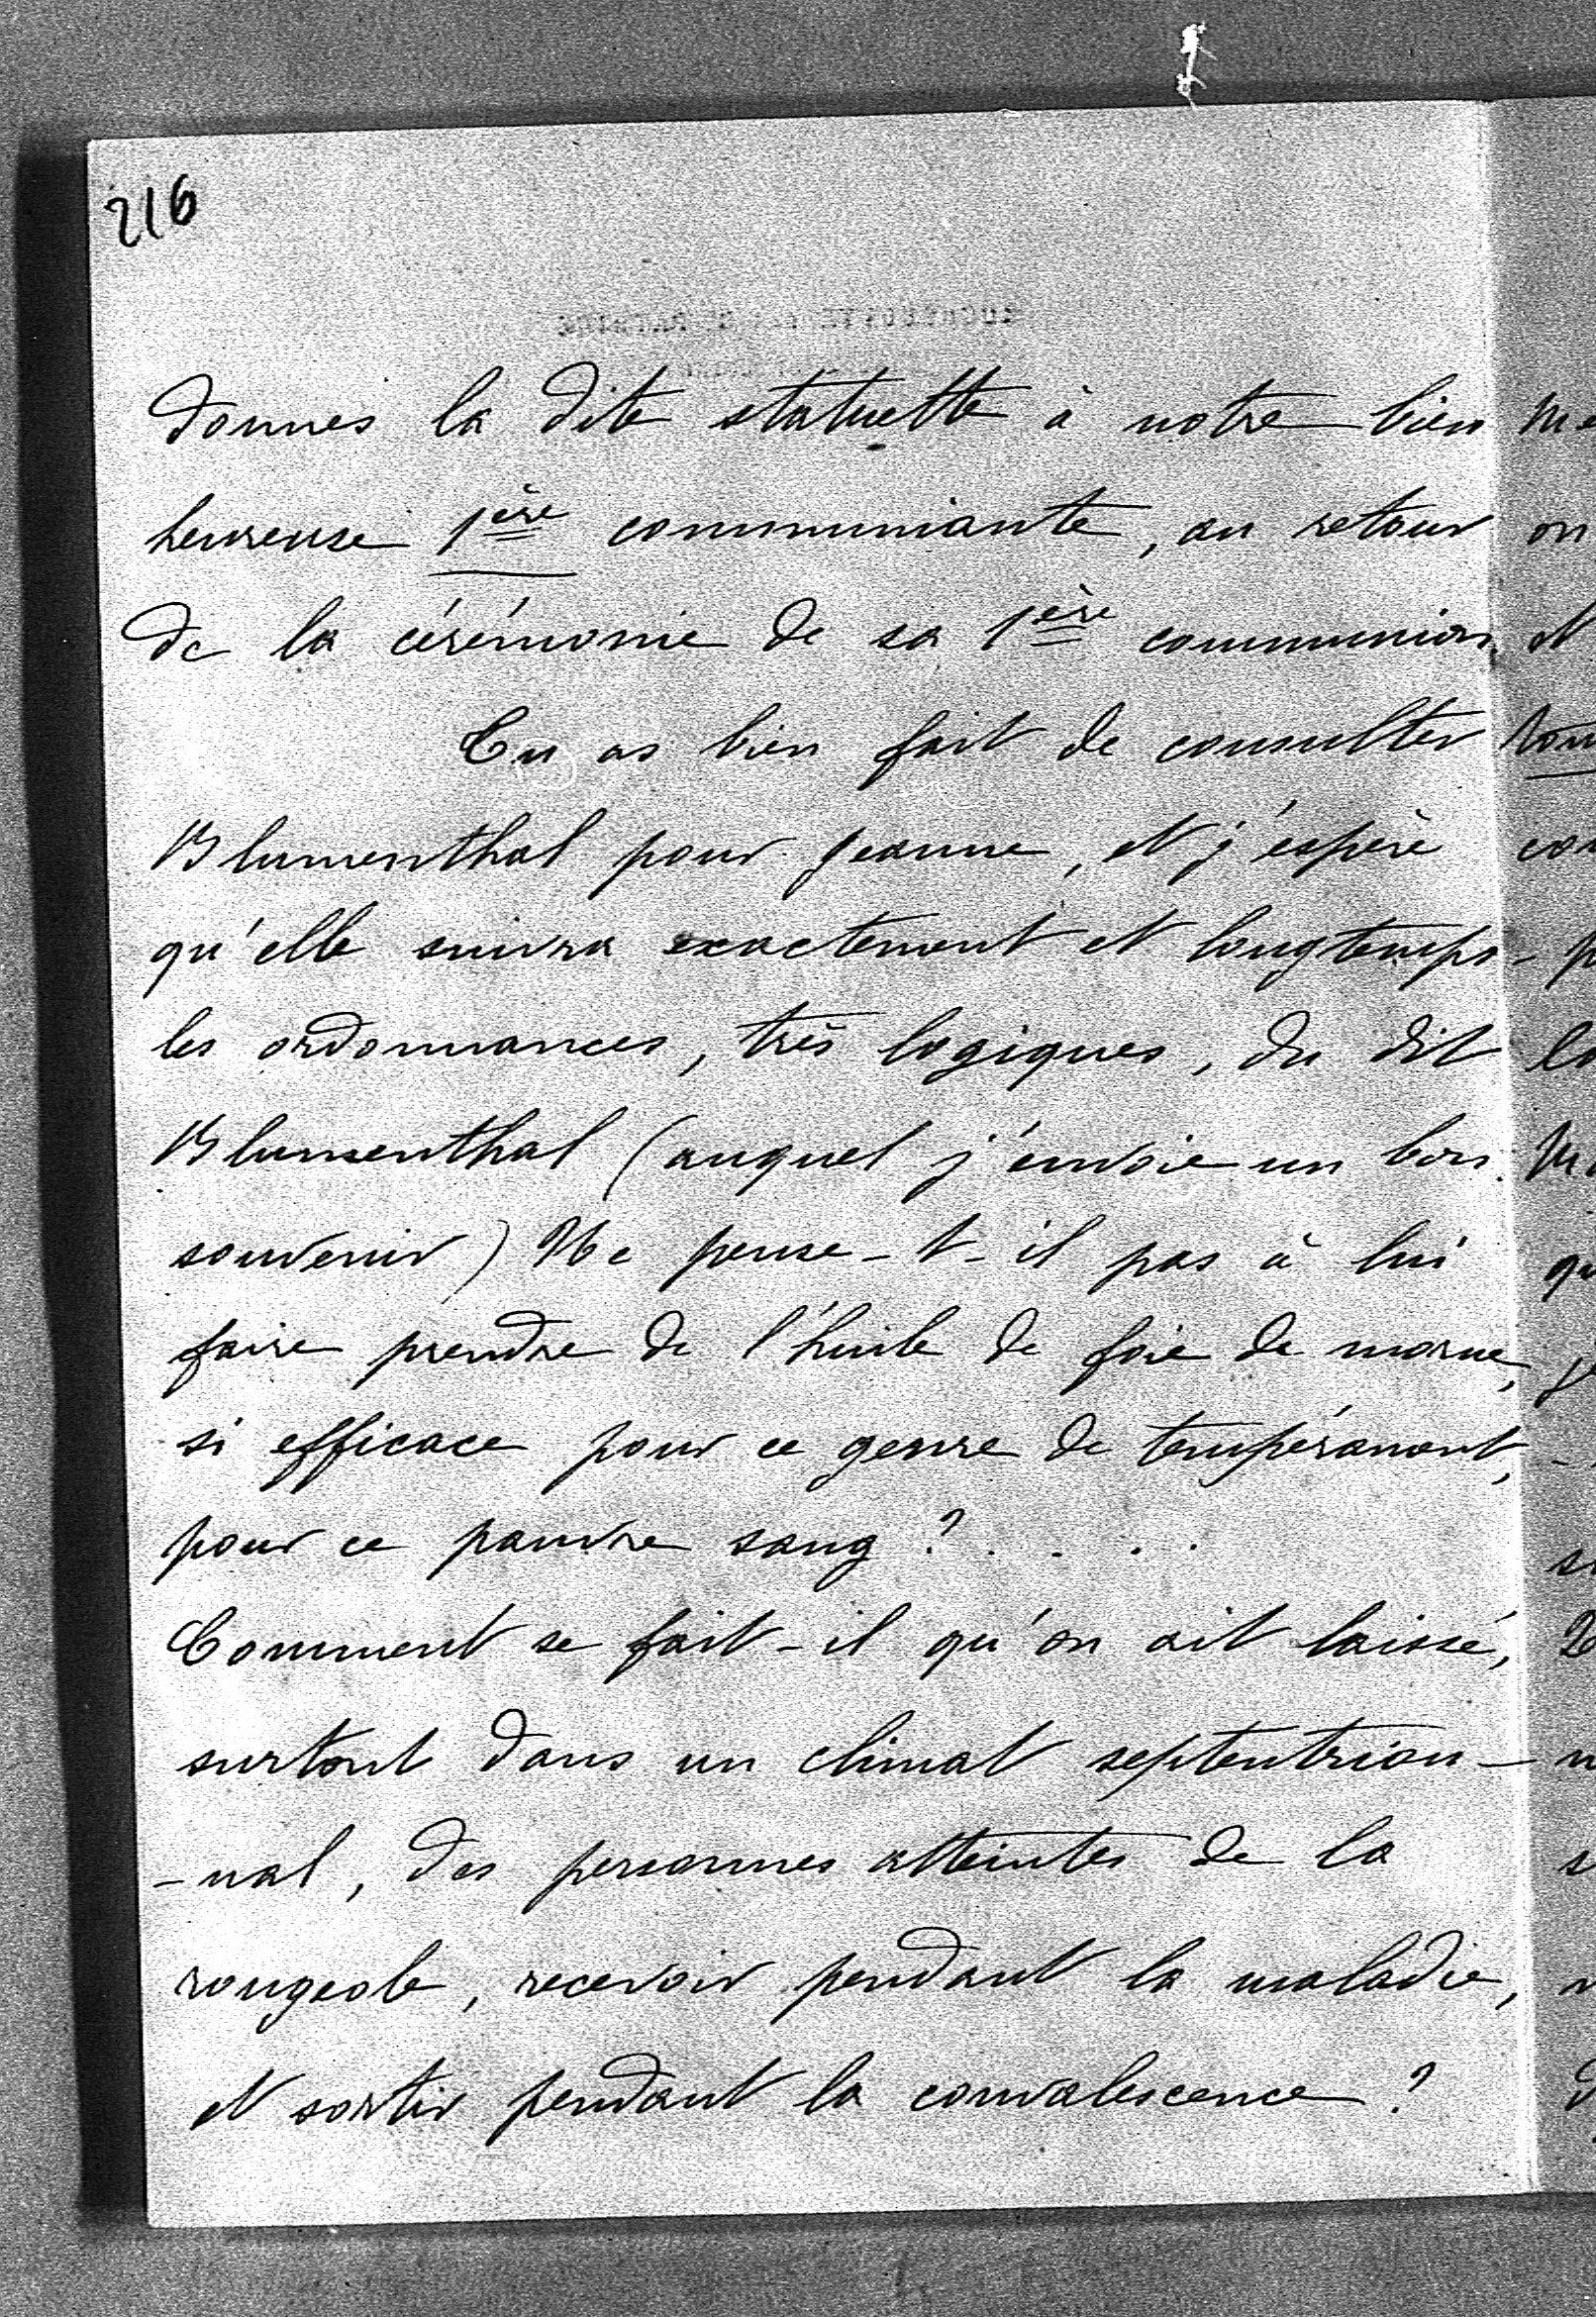 216
donnes la dite statuette à notre bien
heureuse 1ère communiante, au retour
de la cérémonie de sa 1ère communion.
Tu as bien fait de consulter
Blumenthal pour Jeanne, et j'espère
qu'elle suivra exactement et longtemps
les ordonnances, très logiques, du dit
Blumenthal (auquel j'envoie un bon
souvenir) Ne pense-t-il pas à lui
faire prendre de l'huile de foie de morue,
si efficace pour ce genre de tempérament,
pour ce pauvre sang ? . . . .
Comment se fait-il qu'on ait laissé,
surtout dans un climat septentrion-
-nal, des personnes atteintes de la
rougeole, recevoir pendant la maladie,
et sortir pendant la convalescence ?